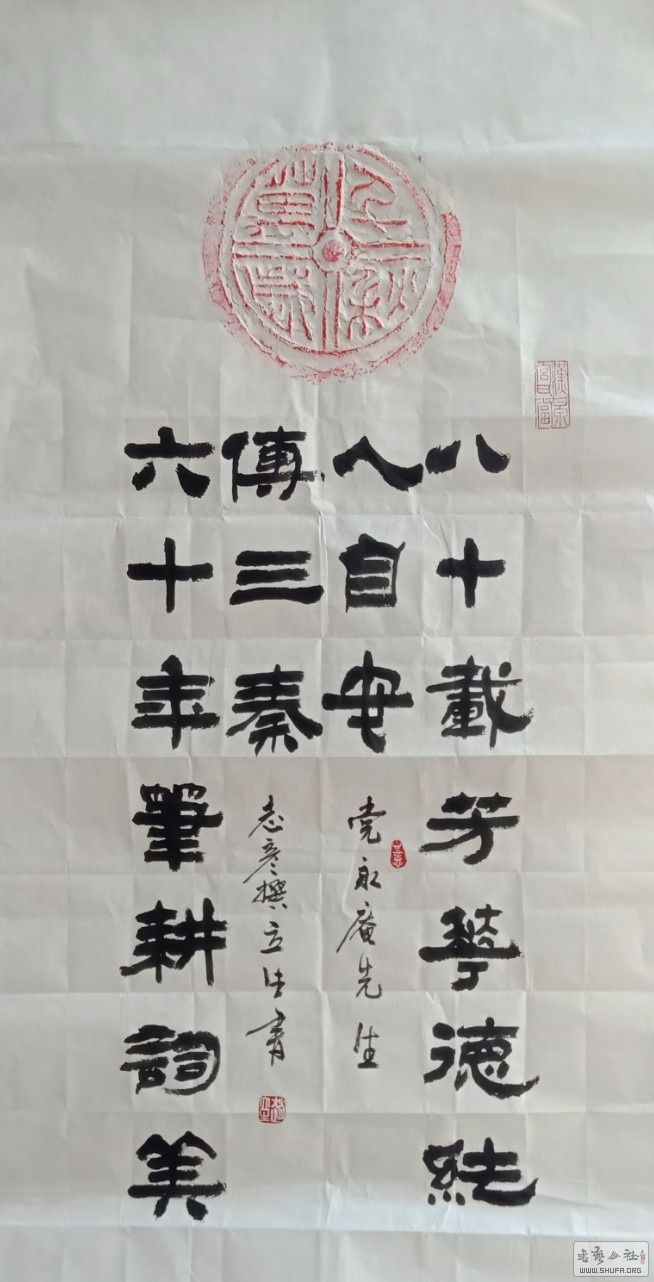 千秋萬歲
八十載芳華德純
人自安
党永庵先生
六十年筆耕詞美
傳三秦
志彦撰立生書
書藝公社
WWW.SHUFA.ORG